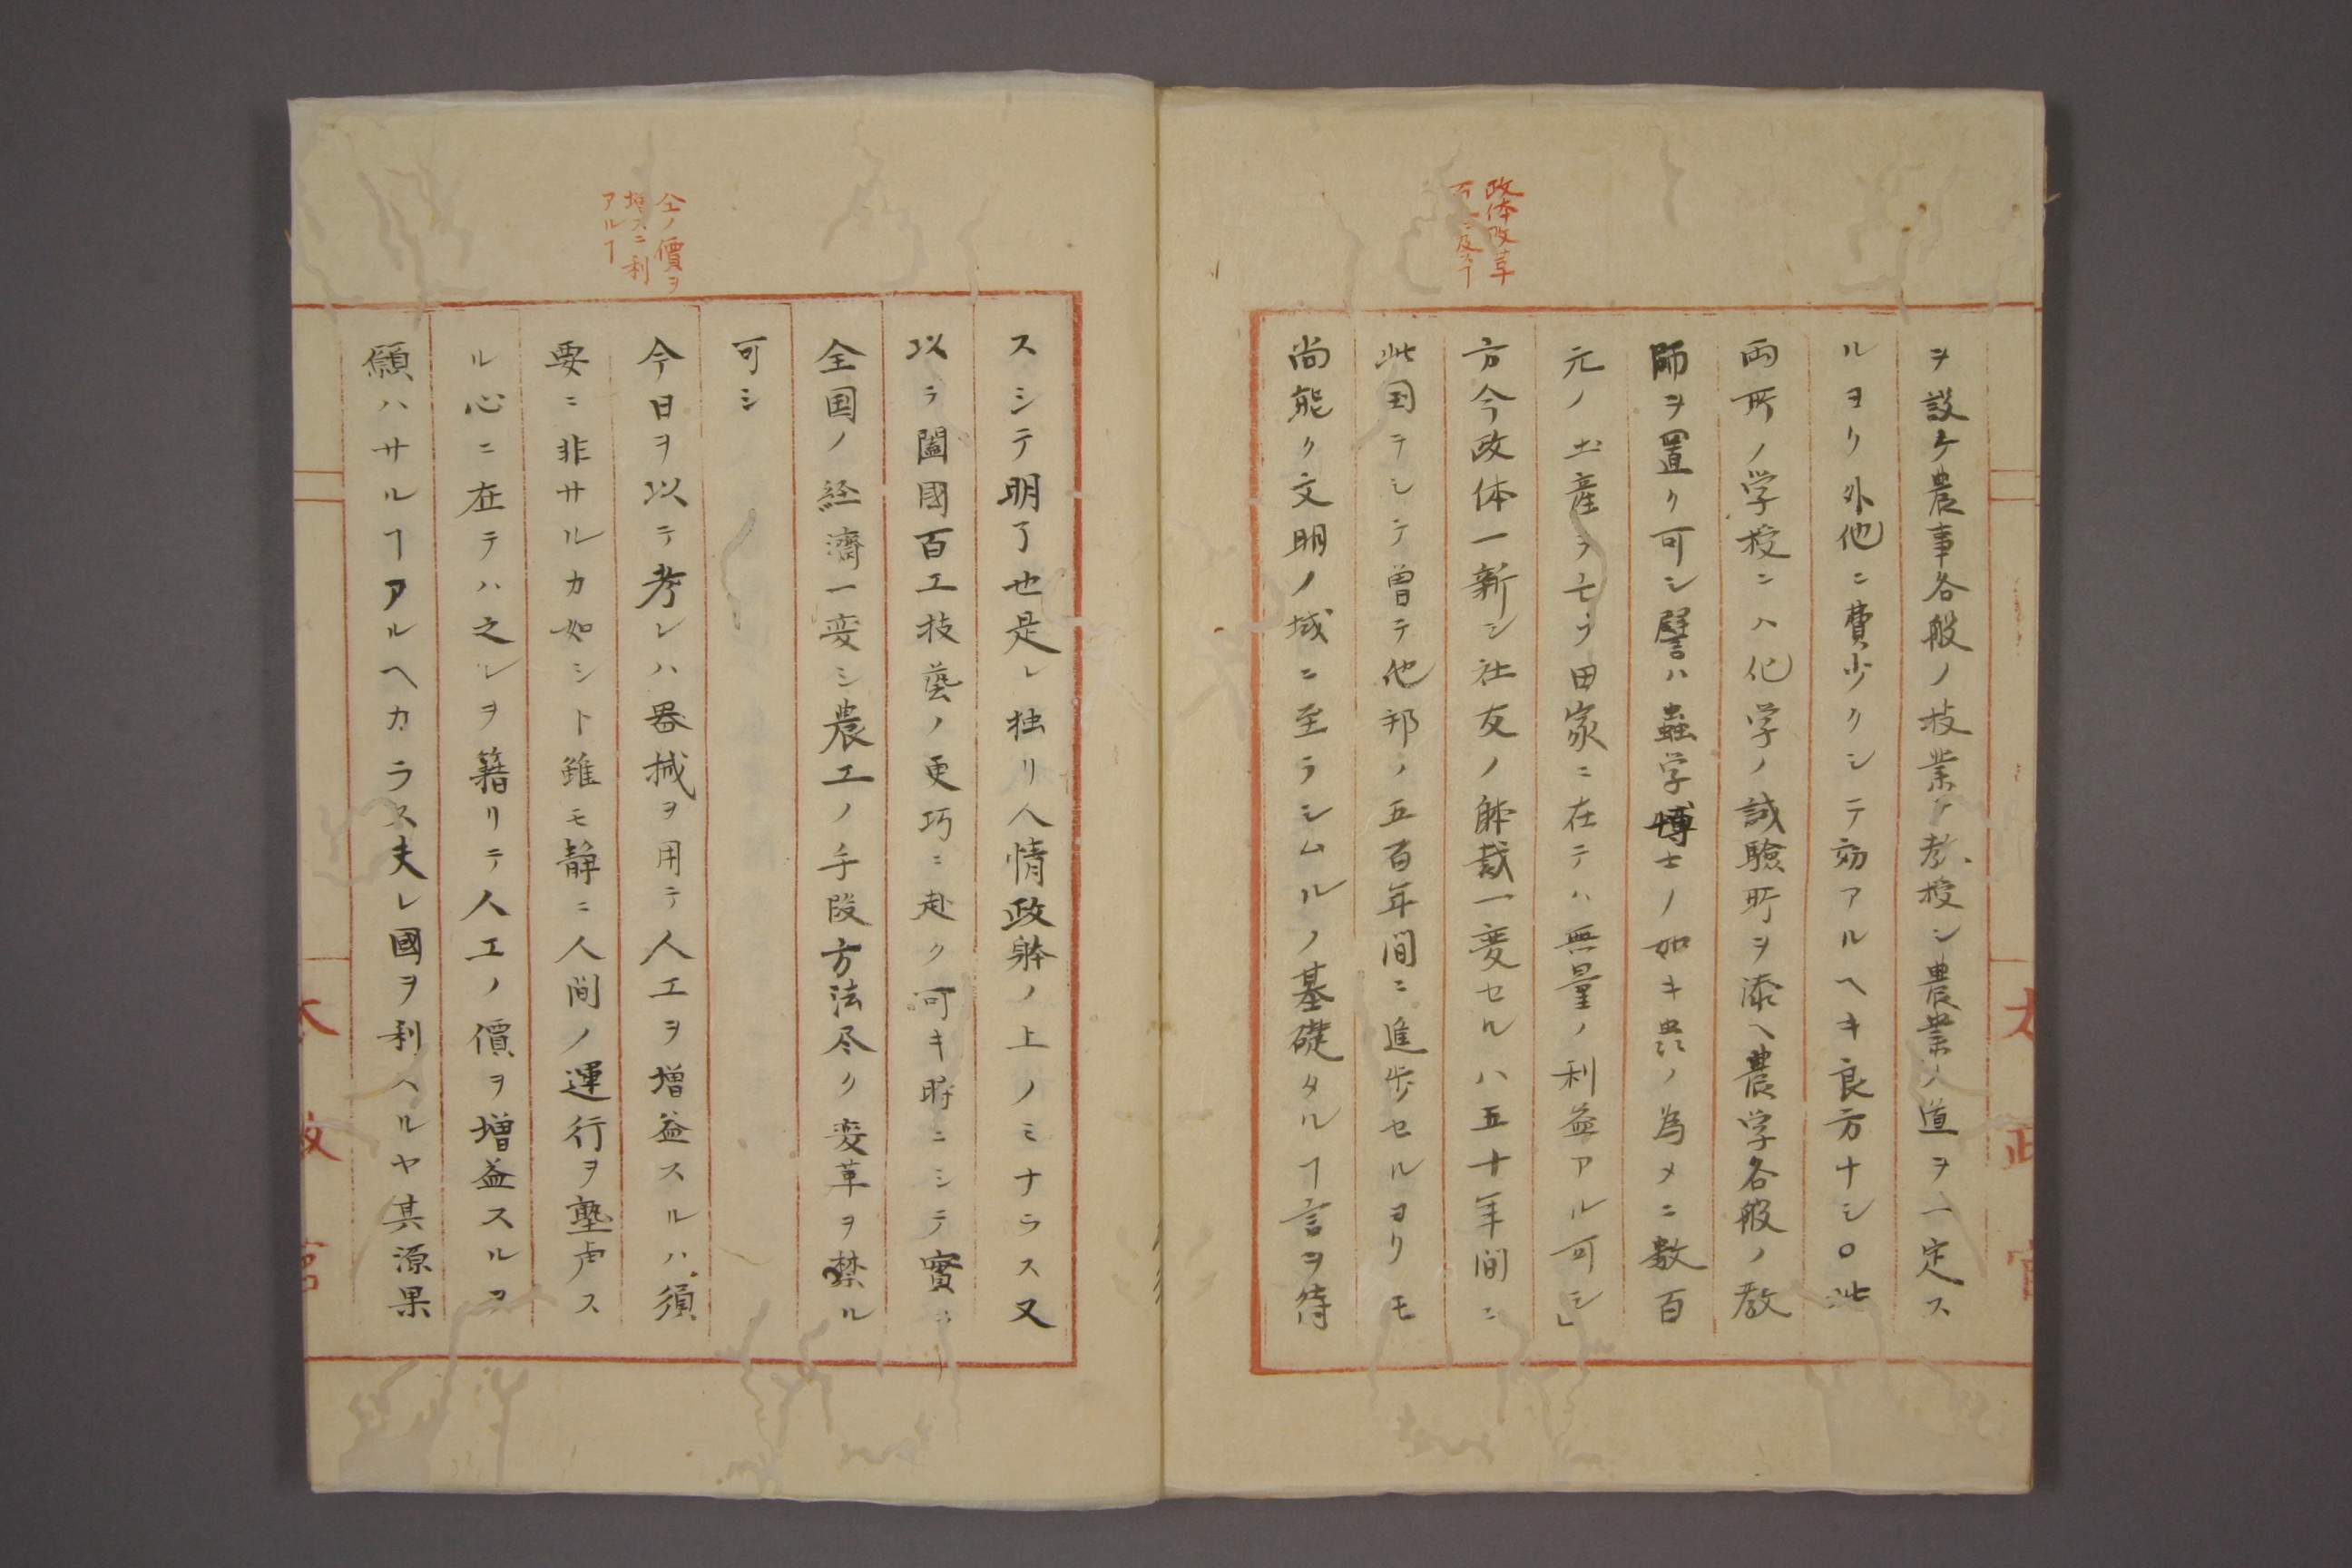 政体改革
ヲ設ケ農事各般ノ技業ヲ教授シ農業ノ道ヲ一定ス
ルヨリ外他ニ費少クシテ効アルヘキ良方ナシ〇此
両所ノ学校ニハ化学ノ試驗所ヲ添ヘ農学各般ノ教
師ヲ置ク可シ譬ハ蟲学博士ノ如キ農ノ為メニ数百
元ノ土産ヲ七ラ田家ニ在テハ無量ノ利益アル可シ」
方今政体一新シ社友ノ躰裁一変セルハ五十年間ニ
此国テシテ曽テ他邦ノ五百年間ニ進歩セルヨリモ
尚能ク文明ノ域ニ至ラシムルノ基礎タルヿ言ヲ待
太政官
仝ノ價ヲ
増スニ利
アルヿ
スシテ明了也是レ独リ人情政躰ノ上ノミナラス又
以テ闔國百工技藝ノ更巧ニ赴ク可キ時ニシテ實ニ
全国ノ経濟一変シ農工ノ手段方法尽ク変革ヲ禁ル
可シ
今日ヲ以テ考レハ器械ヲ用テ人工ヲ増益スルハ須
要ニ非サルカ如シト雖モ静ニ人間ノ運行ヲ
ル心ニ在テハ之レヲ籍リテ人工ノ價ヲ増益スルヲ
願ハサルヿアルヘカラス夫レ國ヲ利ヘルヤ其源果